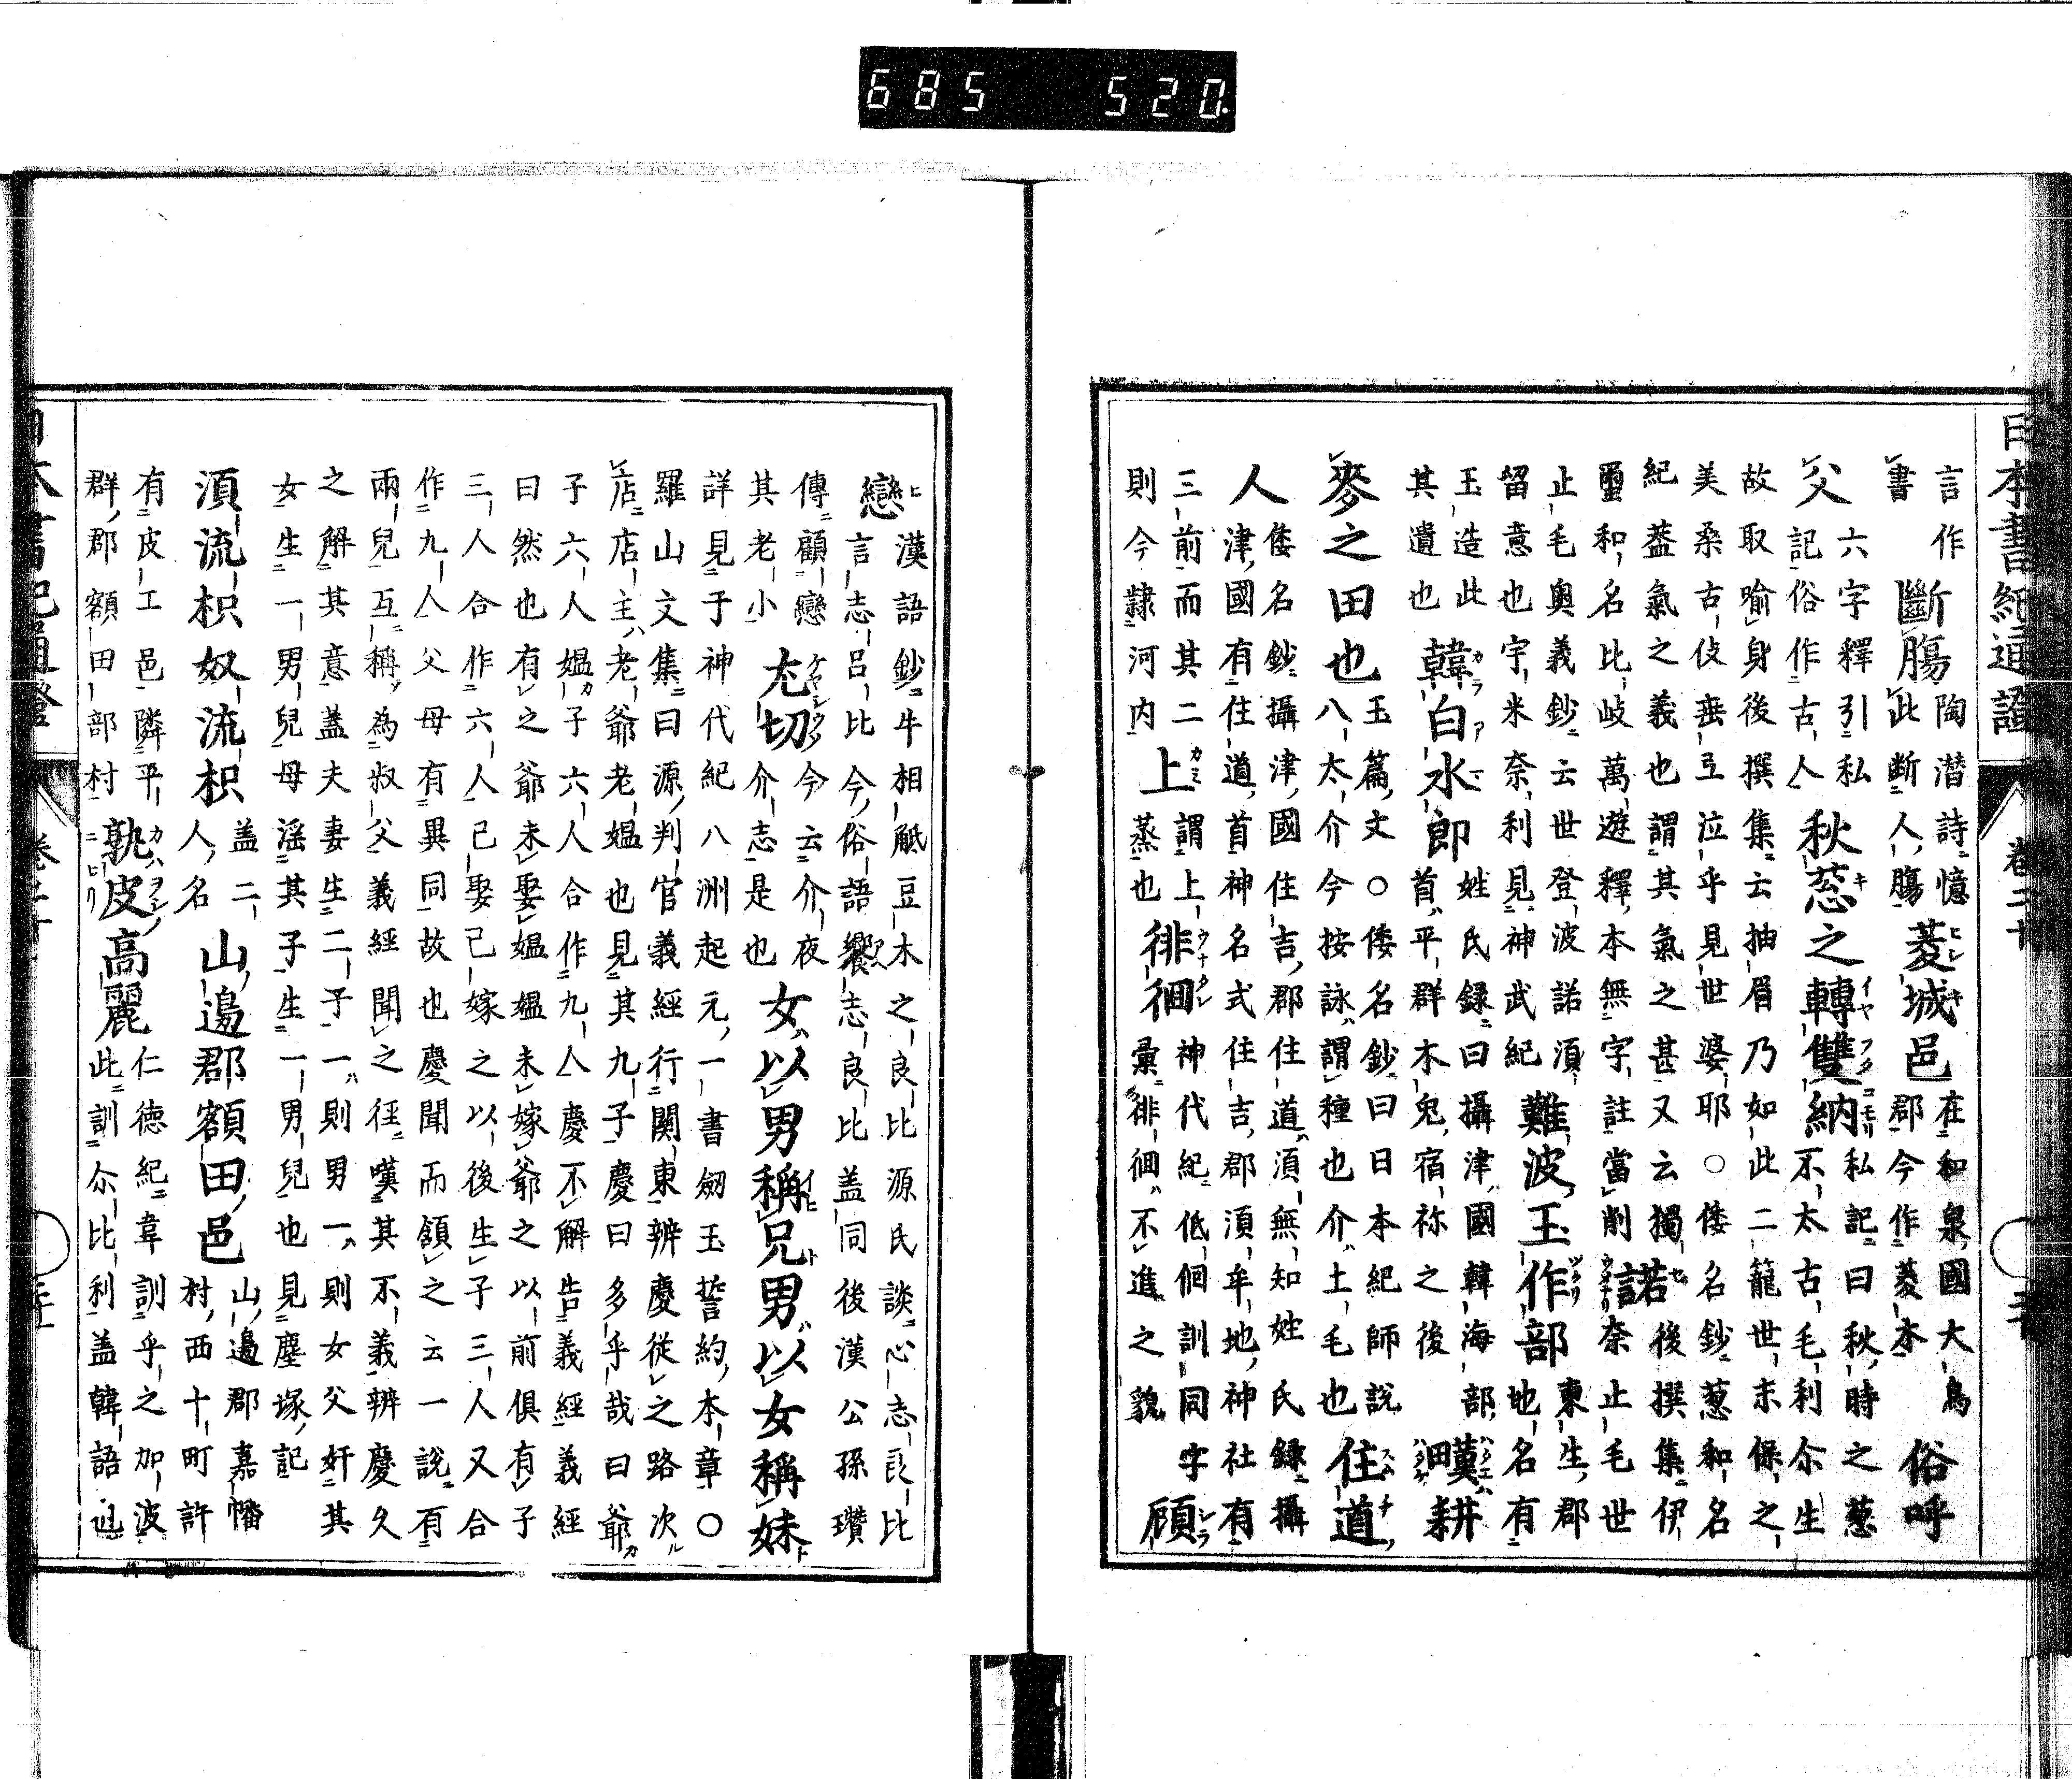 685 520.
日本書紀通證
卷二十
言作
書 斷膓 陶潜詩憶
此断人膓 菱城邑 在和泉國大鳥
郡今作菱木 俗呼
父 六字釋引私
記俗作古人 秋葱之轉雙納 私記曰秋時之葱
不太古毛利尒生
故取喻身後撰集云抽眉乃如此二籠世末保之
美桑古伎垂互泣乎見世婆耶○倭名鈔葱和名
紀 葢氣之義也謂其氣之甚又云獨 諾 後撰集伊
璽和名比岐萬遊釋本無字註當削 奈止毛世
止毛奥義鈔云世登波諾湏
留意也宇米奈利見神武紀 難波玉作部 東生郡
地名有
玉造此
其遺也 韓白水郎 姓氏録曰攝津國韓海部
首平群木兔宿祢之後 𤳉耕
麥之田也 玉篇文○倭名鈔曰日本紀師說
八太介今按詠謂種也介土毛也 住道
人 倭名鈔攝津國住吉郡住道湏無知姓氏録攝
津國有住道首神名式住吉郡湏牟地神社有
三前而其二
則今隷河内 上 謂上
蒸也 徘徊 神代紀低徊訓同字
彙徘徊不進之貌 顧
戀 漢語鈔牛相觝豆木之良比源氏談心志良比
言志呂比今俗語饗志良比盖同後漢公孫瓚
傳顧戀
其老小 尢切 今云介夜
介志是也 女以男稱兄男以女稱妹
詳見于神代紀八洲起元一書劔玉誓約本章○
羅山文集曰源判官義經行関東辨慶從之路次
店店主老爺老媼也見其九子慶曰多乎哉曰爺
子六人媼子六人合作九人慶不解告義經義經
曰然也有之爺未娶媼未嫁爺之以前俱有子
三人合作六人已娶已嫁之以後生子三人又合
作九人父母有異同故也慶聞而領之云一說有
兩兒互稱為叔父義經聞之徑嘆其不義辨慶久
之解其意盖夫妻生二子一則男一則女父奸其
女生一男兒母淫其子生一男兒也見塵塚記
湏流枳奴流枳 盖二
人名 山邊郡額田邑 山邊郡嘉幡
村西十町許
有皮工邑隣平
群郡額田部村 熟皮高麗 仁徳紀韋訓乎之加波
此訓尒比利盖韓語
日本書紀通證
卷二十